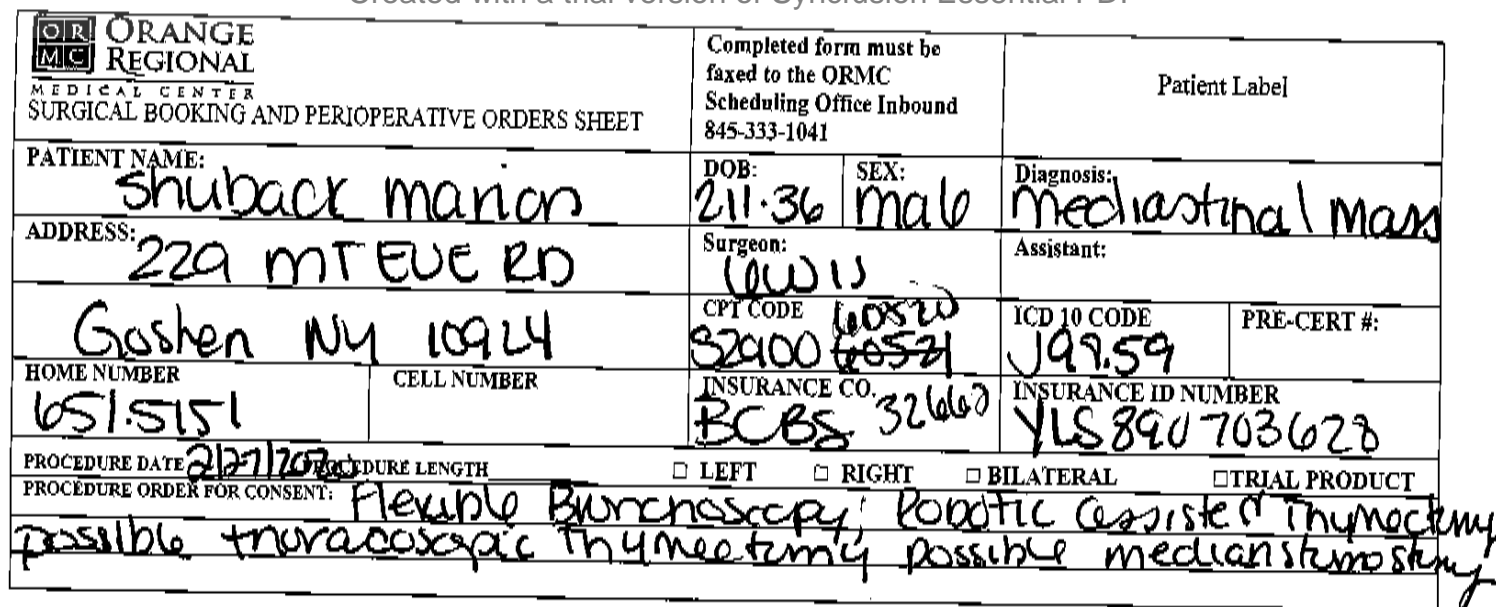 Created with a trial version of Syncfusion Essential PDF
OR ORANGE
MC REGIONAL
MEDICAL CENTER
SURGICAL BOOKING AND PERIOPERATIVE ORDERS SHEET
Completed form must be
faxed to the ORMC
Scheduling Office Inbound
845-333-1041
Patient Label
PATIENT NAME: Shuback Marion
DOB: 211.36
SEX: male
Diagnosis: Mediastinal Mass
ADDRESS: 229 MT EVE RD
Surgeon: Lewis
Assistant:
Goshen NY 10924
CPT CODE 60520
S2900 60521
ICD 10 CODE
J98.59
PRE-CERT #:
HOME NUMBER
651.5151
CELL NUMBER
INSURANCE CO. 
BCBS
INSURANCE ID NUMBER
YLS890703628
PROCEDURE DATE 2/27/2020 PROCEDURE LENGTH □ LEFT □ RIGHT □ BILATERAL □TRIAL PRODUCT
PROCEDURE ORDER FOR CONSENT: Flexible Bronchoscopy; Robotic assisted Thymectomy
possible thoracoscopic Thymectomy possible median